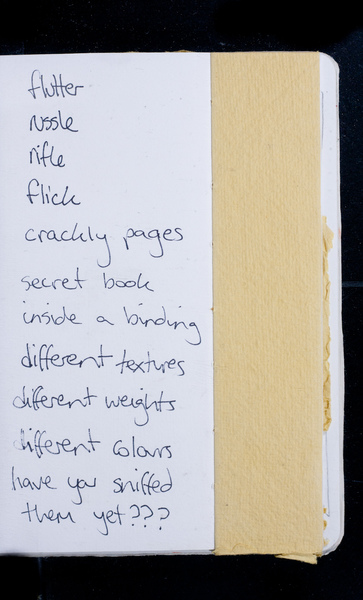 flutter
russle
rifle
flick
crackly pages
secret book
inside a binding
different textures
different weights
different colours
have you sniffed
them yet???